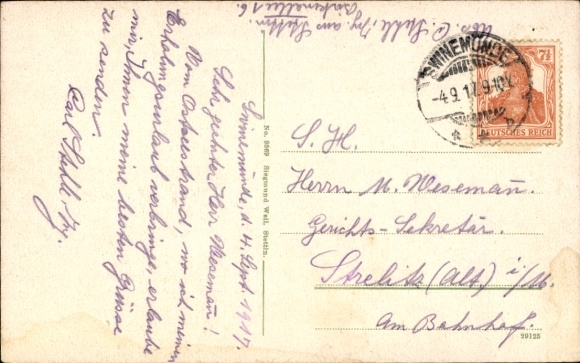 Abs. C. Stehl, jg. aus Stettin.
Birkenallee 16.
Swinemünde, d. 4. Sept. 1917.
Sehr geehrter Herr Wesemañ!
Vom Ostseestrand, wo ich meinen
Erholungsurlaub verbringe, erlaube
mir, Ihnen meine besten Grüsse
zu senden.
Carl Stehl. jg.
No. 9869 Siegmund Weil, Stettin.
SWINEMÜNDE
-4.9.17.9-10V.
7½
DEUTSCHES REICH
S. H.
Herrn M. Wesemañ.
Gerichts-Sekretär.
Strelitz (Alt) i/M.
Am Bahnhof.
29125